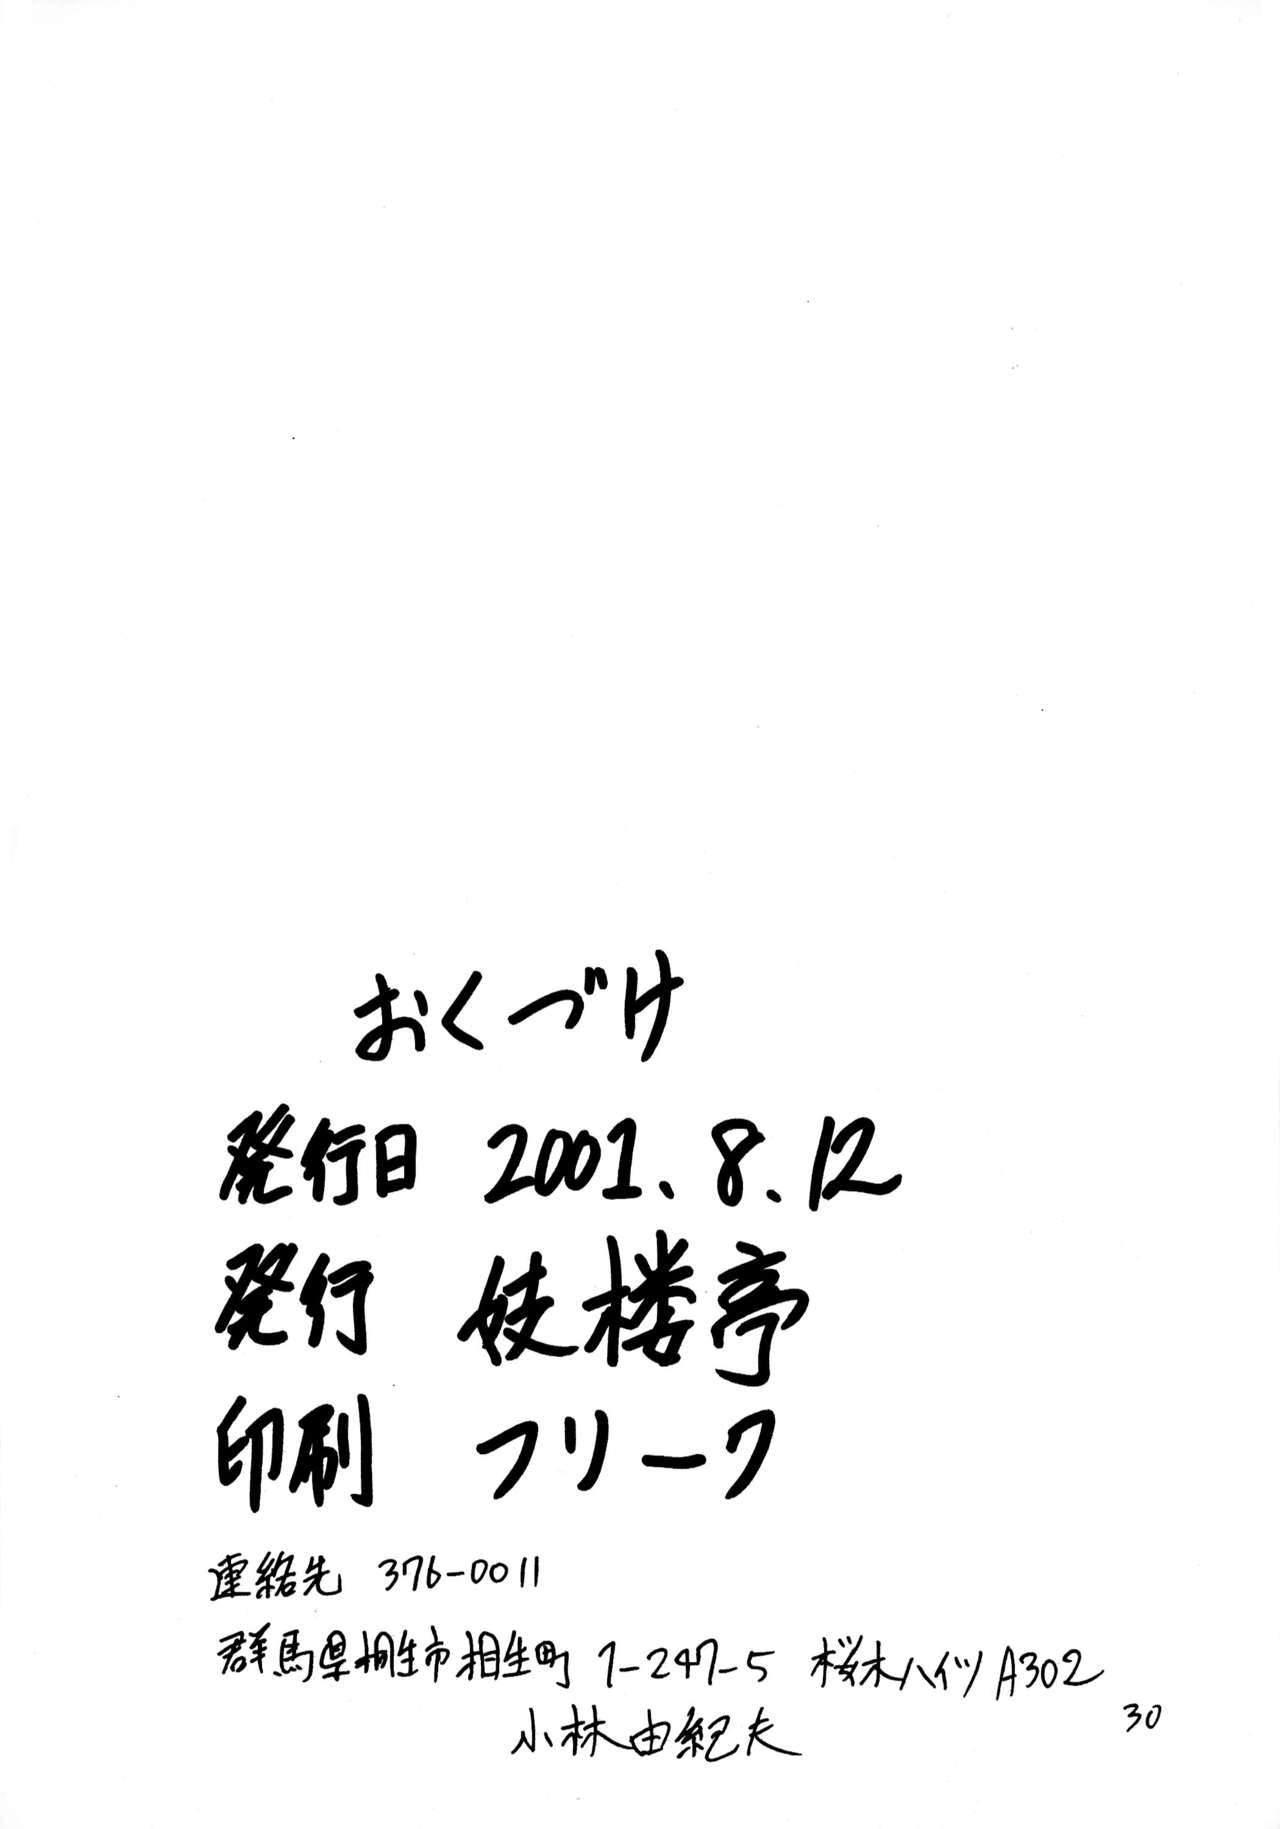 おくづけ
発行日 2001.8.12
発行 妓楼亭
印刷 フリーク
連絡先 376-0011
群馬県桐生市相生町 1-247-5 桜木ハイツ A302
小林由紀夫
30